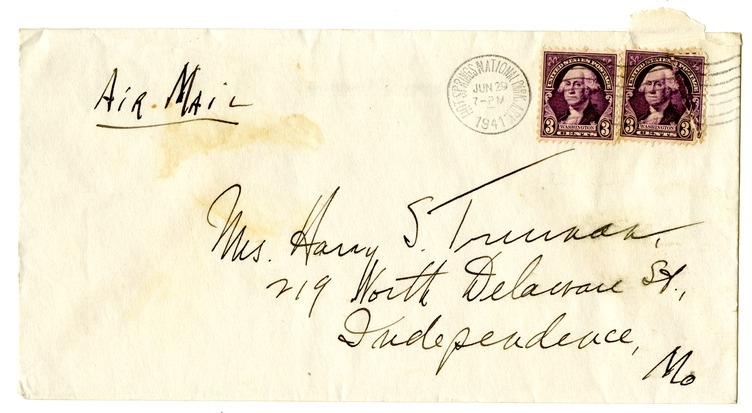 Air Mail
HOT SPRINGS NATIONAL PARK, ARK.
JUN 29
7-PM
1941
UNITED STATES POSTAGE
3 WASHINGTON 3
CENTS
UNITED STATES POSTAGE
3 WASHINGTON 3
CENTS
Mrs. Harry S. Truman,
219 North Delaware St.,
Independence,
Mo